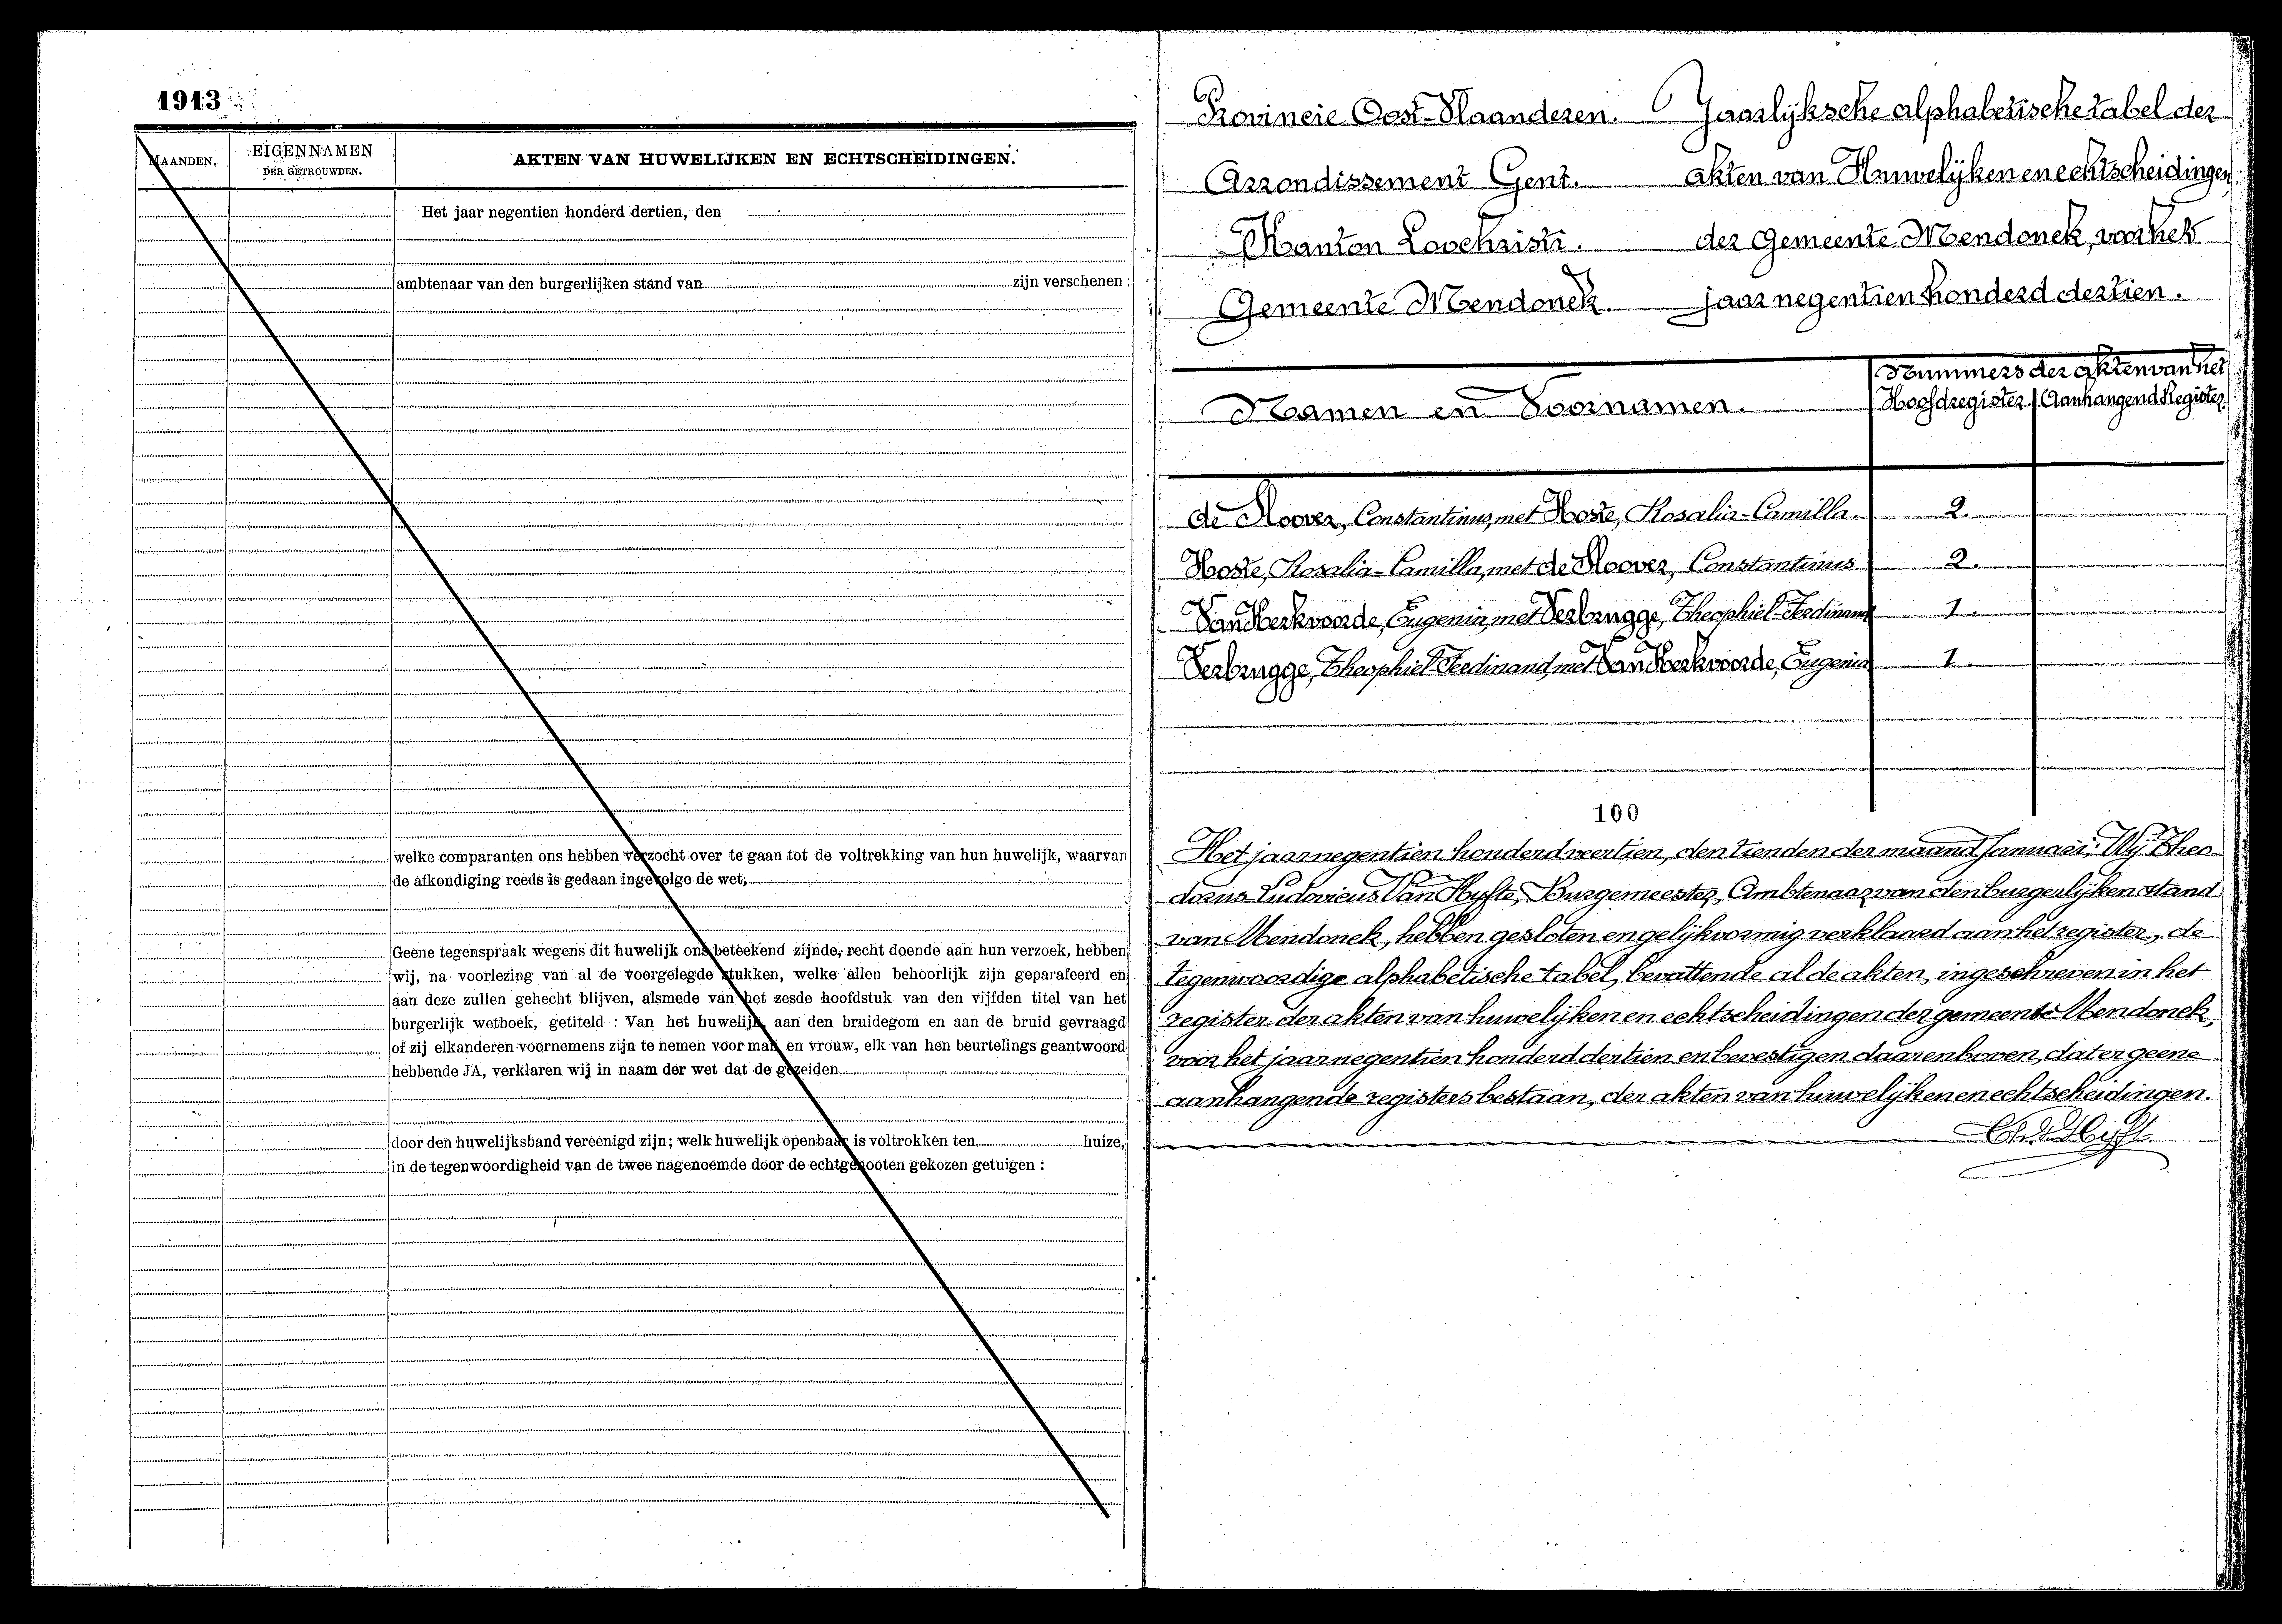 1913
MAANDEN.
EIGENNAMEN
DER GETROUWDEN.
AKTEN VAN HUWELIJKEN EN ECHTSCHEIDINGEN.
Het jaar negentien honderd dertien, den
ambtenaar van den burgerlijken stand van zijn verschenen :
welke comparanten ons hebben verzocht over te gaan tot de voltrekking van hun huwelijk, waarvan
de afkondiging reeds is gedaan ingevolge de wet;
Geene tegenspraak wegens dit huwelijk ons beteekend zijnde, recht doende aan hun verzoek, hebben
wij, na voorlezing van al de voorgelegde stukken, welke allen behoorlijk zijn geparafeerd en
aan deze zullen gehecht blijven, alsmede van het zesde hoofdstuk van den vijfden titel van het
burgerlijk wetboek, getiteld : Van het huwelijk, aan den bruidegom en aan de bruid gevraagd
of zij elkanderen voornemens zijn te nemen voor man en vrouw, elk van hen beurtelings geantwoord
hebbende JA, verklaren wij in naam der wet dat de gezeiden
door den huwelijksband vereenigd zijn; welk huwelijk openbaar is voltrokken ten huize,
in de tegenwoordigheid van de twee nagenoemde door de echtgenooten gekozen getuigen :
Provincie Oost-Vlaanderen.
Arrondissement Gent.
Kanton Loochristi.
Gemeente Mendonck.
Jaarlijksche alphabetische tabel der
akten van Huwelijken en echtscheidingen
der Gemeente Mendonck, voor het
jaar negentien honderd dertien.
Namen en Voornamen.
Nummers der akten van het
Hoofdregister. Aanhangend Register.
de Roover, Constantinus, met Hoste, Rosalia-Camilla 2.
Hoste, Rosalia-Camilla, met de Roover, Constantinus 2.
Van Kerkvoorde, Eugenia, met Verbrugge, Theophiel-Ferdinand 1.
Verbrugge, Theophiel-Ferdinand, met Van Kerkvoorde, Eugenia 1.
100
Het jaar negentien honderd veertien, den tienden der maand Januari, Wij Theo-
dorus-Ludovicus Van Hyfte, Burgemeester, Ambtenaar van den burgerlijken stand
van Mendonck, hebben gesloten en gelijkvormig verklaard aan het register, de
tegenwoordige alphabetische tabel, bevattende al de akten, ingeschreven in het
register der akten van huwelijken en echtscheidingen der gemeente Mendonck,
voor het jaar negentien honderd dertien en bevestigen daarenboven, dat er geene
aanhangende registers bestaan, der akten van huwelijken en echtscheidingen.